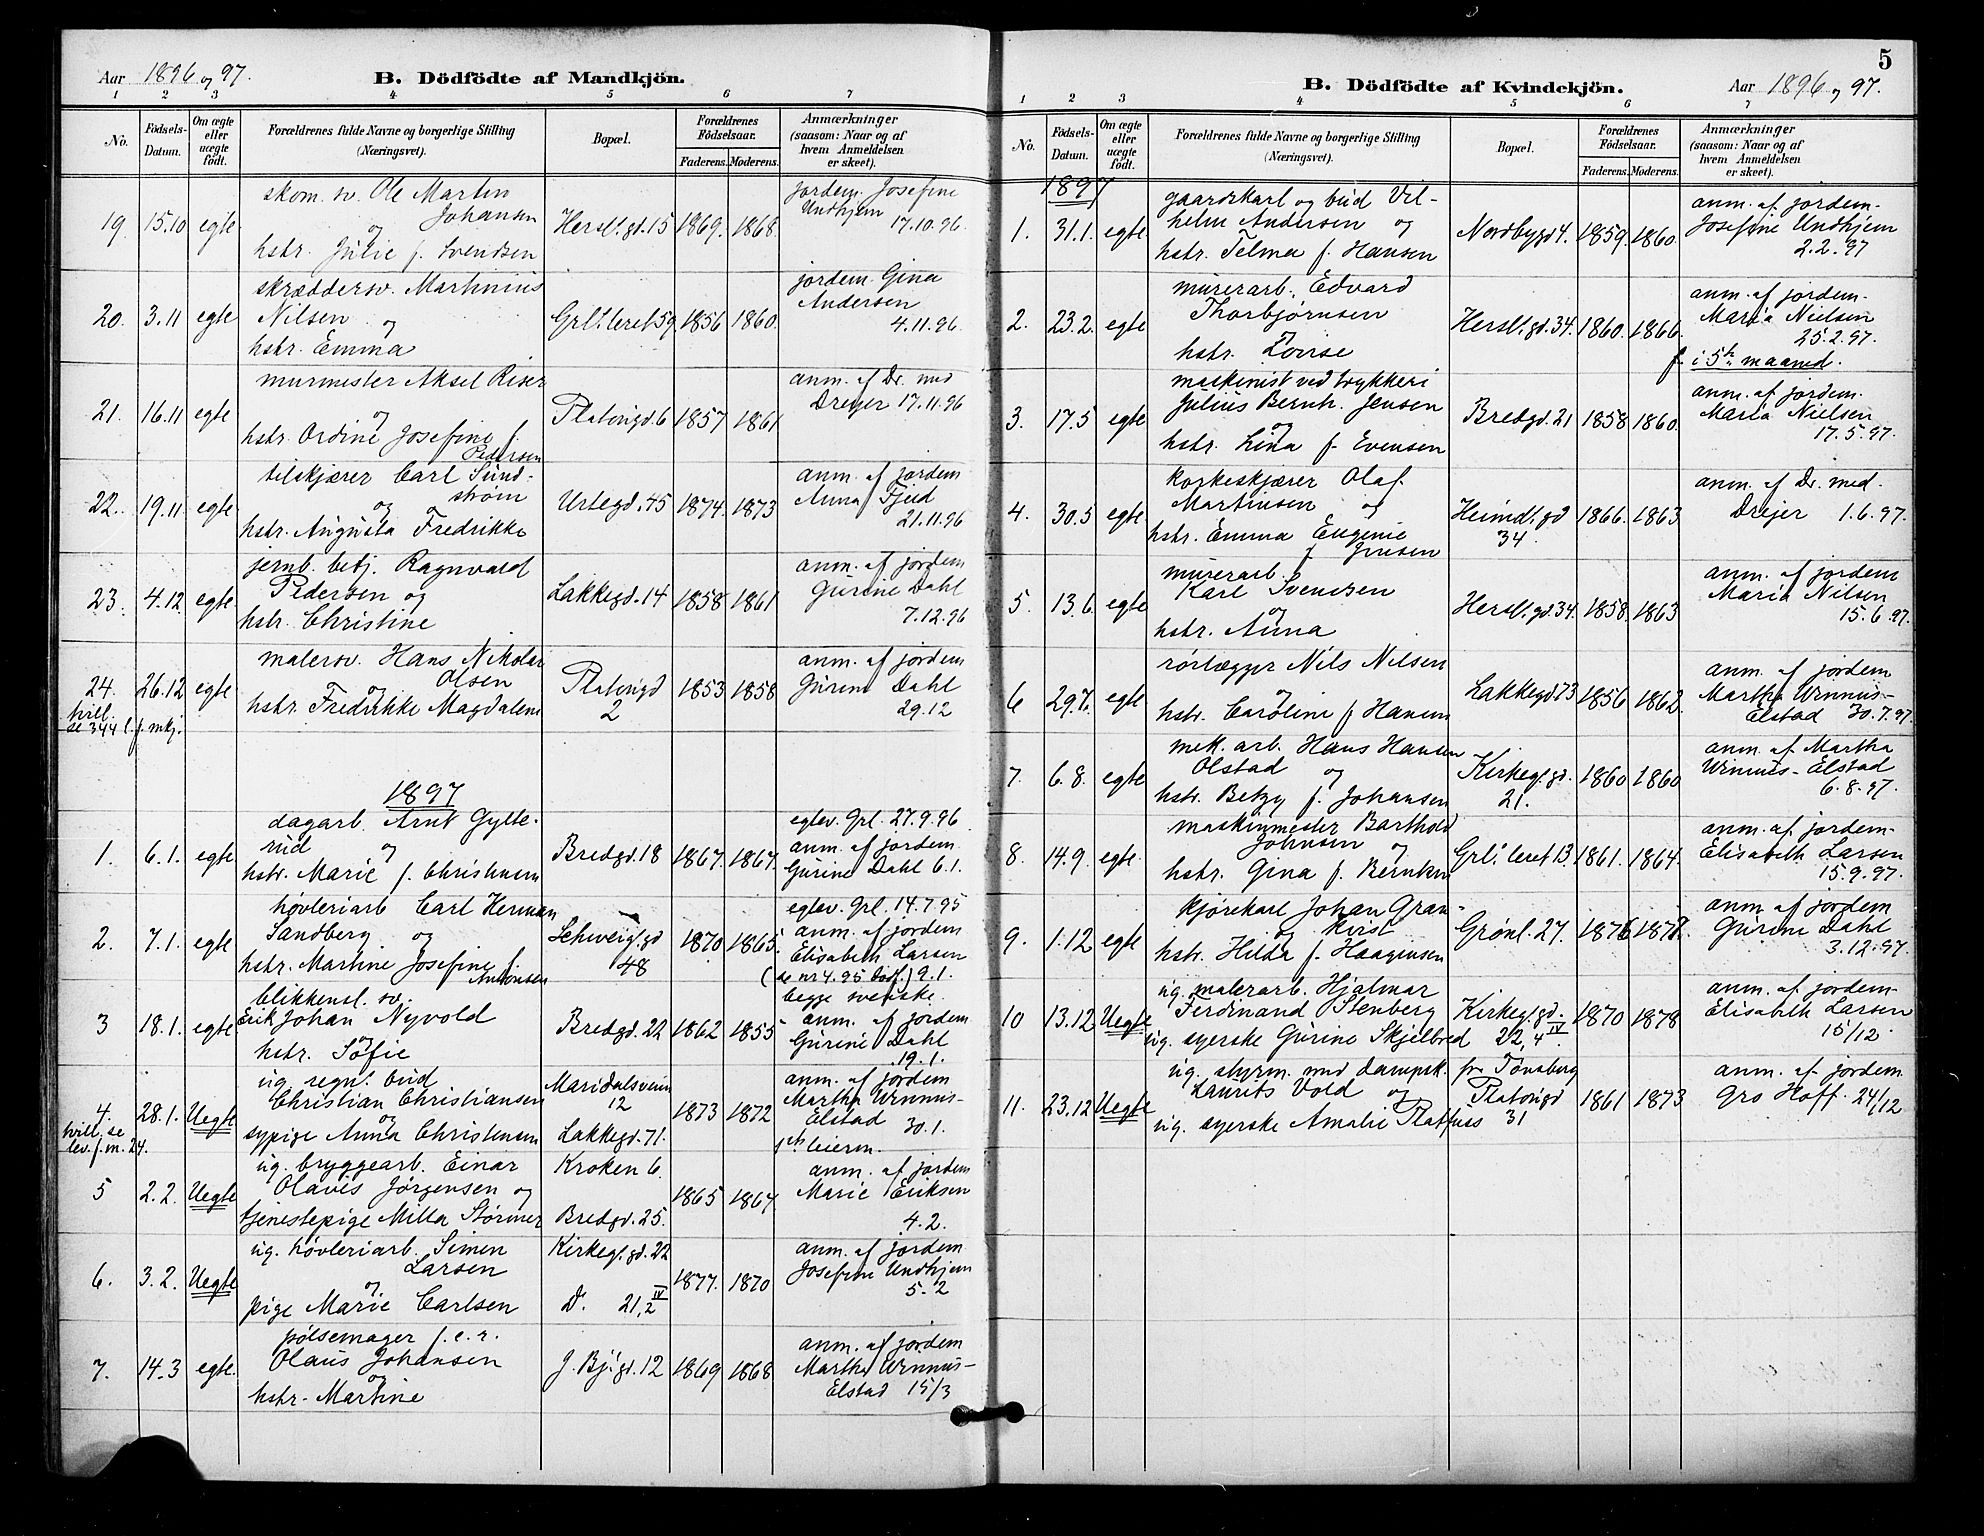 Aar 1896 og 97. B. Dödfödte af Mandkjön.
1 2 3 4 5 6 7
No. Födsels-Datum. Om ægte eller uægte födt. Forældrenes fulde Navne og borgerlige Stilling (Næringsvei). Bopæl. Forældrenes Födselsaar. Faderens. Moderens. Anmærkninger (saasom: Naar og af hvem Anmeldelsen er skeet).
skom. sv. Ole Martin
Johansen
19. 15.10 egte og Hersl. gd. 15 1869. 1868. jordem. Josefine
Undhjem
17.10.96.
hstr. Julie f. Svendsen
skræddersv. Martinius
20. 3.11 egte Nilsen og Grl. leret 59 1856 1860. jordem. Gina
Andersen
4.11.96.
hstr. Emma
murmester Aksel Riser
21. 16.11 egte og Platousgd. 6 1857 1861 anm. af Dr. med
Dreyer 17.11.96
hstr. Ordine Josefine f.
Pedersen
tilskjærer Carl Sund-
strøm
22. 19.11 egte og Urtegd. 45 1874. 1873 anm. af jordem
Anna Tjed
21.11.96
hstr. Augusta Fredrikke
jernb. betj. Ragnvard
23. 4.12 egte Pedersen og Lakkegd. 14 1858 1861 anm. af jordem
Gurine Dahl
7.12.96
hstr. Christine
malersv. Hans Nikolai
Olsen
24. 26.12 egte og Platousgd
2 1853 1858 anm. af jordem
Gurine Dahl
29.12
hstr. Fredrikke Magdalene
tvill.
se 344 l. f. mkj.
1897
dagarb. Arnt Gylte-
1. 6.1. egte rud og Bredgd. 18 1867. 1867. egtev. Grl. 27.9.96
anm. af jordem
Gurine Dahl 6.1.
hstr. Marie f. Christensen
høvleriarb Carl Herman
2. 7.1. egte Sandberg og Schweig. gd
48 1870 1865. egtev. Grl. 14.7.95
anm. af jordem
Elisabeth Larsen
(se nr 4. 95 Dödf.) 9.1.
hstr. Martine Josefine f.
Antonsen
blikkensl. sv.
3 18.1. egte Erik Johan Nyvold Bredgd. 22 1862 1855 begge svenske.
anm. af jordem
Gurine Dahl
19.1.
og
hstr. Sofie
ug. regnl. bud
4. 28.1. Uegte Christian Christiansen Maridalsveien
12 1873 1872 anm. af jordem
Martha Winnus-
Elstad 30.1.
1ste leierm.
og
sypige Anna Christensen Lakkegd. 71.
tvill. se
lev. f. m. 24.
ug. bryggearb. Einar Kroken 6.
5 2.2. Uegte Olavis Jørgensen og 1865 1867 anm. af jordem
Marie Eriksen
4.2.
tjenestepige Milla Størmer Bredgd. 25.
ug. høvleriarb. Simen Kirkegl. gd. 22
Larsen
6. 3.2. Uegte og 1877. 1870 anm. af jordem
Josefine Undhjem
5.2
pige Marie Carlsen D. 21,2 IV
pølsemager f.e.r.
7. 14.3 egte. Olaus Johansen J. Bj. gd. 12 1869 1868 anm. af jordem
Martha Winnus-
Elstad 15/3
og
hstr. Martine
5
B. Dödfödte af Kvindekjön. Aar 1896 og 97.
1 2 3 4 5 6 7
No. Födsels-Datum. Om ægte eller uægte födt. Forældrenes fulde Navne og borgerlige Stilling (Næringsvei). Bopæl. Forældrenes Födselsaar. Faderens. Moderens. Anmærkninger (saasom: Naar og af hvem Anmeldelsen er skeet).
1897
gaardskarl og bud Vil-
1. 31.1. egte helm Andersen og Nordbygd 4. 1859 1860. anm. af jordem-
Josefine Undhjem
2.2.97
hstr. Telma f. Hansen
murerarb. Edvard
2. 23.2. egte Thorbjørnsen Hersl. gd. 34. 1860. 1866. anm. af jordem-
Maria Nielsen
25.2.97.
f. i 5te maaned.
og
hstr. Lovise
maskinist ved trykkeri
3. 17.5 egte Julius Bernh. Jensen Bredgd. 21 1858 1860. anm. af jordem.
Maria Nielsen
17.5.97.
og
hstr. Lina f. Evensen
Korkeskjærer Olaf
4. 30.5 egte Martinsen og Heimdl. gd
34. 1866. 1863 anm. af Dr. med.
Drejer 1.6.97.
hstr. Emma Eugenie
f. Jensen
murerarb.
5. 13.6. egte Karl Svendsen Hersl. gd. 34. 1858. 1863 anm. af jordem
Maria Nilsen
15.6.97.
og
hstr. Anna
rørlægger Nils Nilsen
6 29.7. egte og Lakkegd. 73 1856 1862. anm. af jordem
Martha Winnus-
Elstad 30.7.97.
hstr. Caroline f. Hansen
mek. arb. Hans Hansen
7. 6.8. egte Olstad og Kirkegl. gd.
21. 1860 1860 anm. af Martha
Winnus-Elstad
6.8.97.
hstr. Betzy f. Johansen
maskinmester Barthold
8. 14.9. egte. Johnsen og Grl. leret 13. 1861. 1864. anm. af jordem-
Elisabeth Larsen
15.9.97.
hstr. Gina f. Berntsen
kjørekarl Johan Gran-
kvist
9. 1.12 egte og Grønl. 27. 1876 1877. anm. af jordem
Gurine Dahl
3.12.97.
hstr. Hilda f. Haagensen
ug. malerarb. Hjalmar
10 13.12 Uegte Ferdinand Stenberg Kirkegl. gd.
22, 4 IV. 1870 1878 anm. af jordem-
Elisabeth Larsen
15/12.
og
ug. syerske Gurine Skjelbred
ug. styrm. med dampsk. fra Tønsberg
11. 23.12 Uegte Laurits Vold og Platousgd
31 1861 1873 anm. af jordem
Gro Hoff. 24/12
ug. syerske Amalie Platfuss